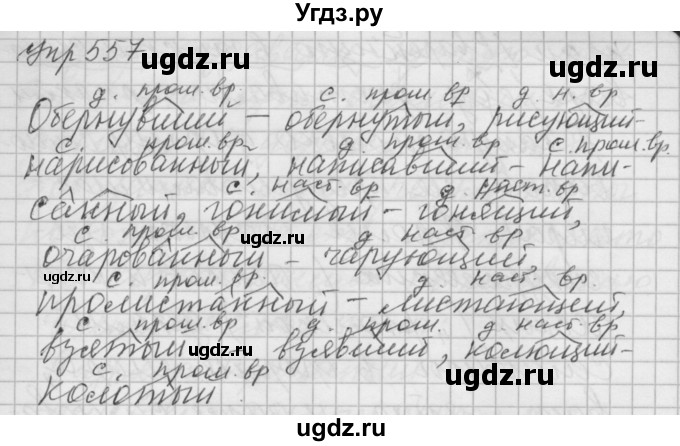 Угдз.ру
упр 557
д. прош. вр. с. прош. вр д. н. вр
Обернувший – обернутый, рисующий-
с. прош. вр. д. прош. вр. с. прош. вр.
нарисованный, написавший – напи-
с. наст. вр д. наст. вр
санный, гонимый – гонящий,
с. прош. вр д. наст. вр
очарованный – чарующий,
с. прош. вр д. наст. вр.
пролистанный – листающий,
с. прош. вр д. прош. д. наст. вр
взятый взявший, колющий-
с. прош. вр
колотый.
ugdz.ru
ugdz.ru
ugdz.ru
ugdz.ru
ugdz.ru
ugdz.ru
ugdz.ru
ugdz.ru